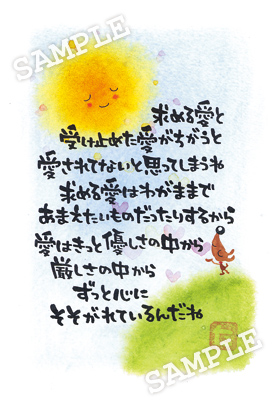 SAMPLE
求める愛と
受け止めた愛がちがうと
愛されてないと思ってしまうね
求める愛はわがままで
あまえたいものだったりするから
愛はきっと優しさの中から
厳しさの中から
ずっと心に
そそがれているんだね
SAMPLE